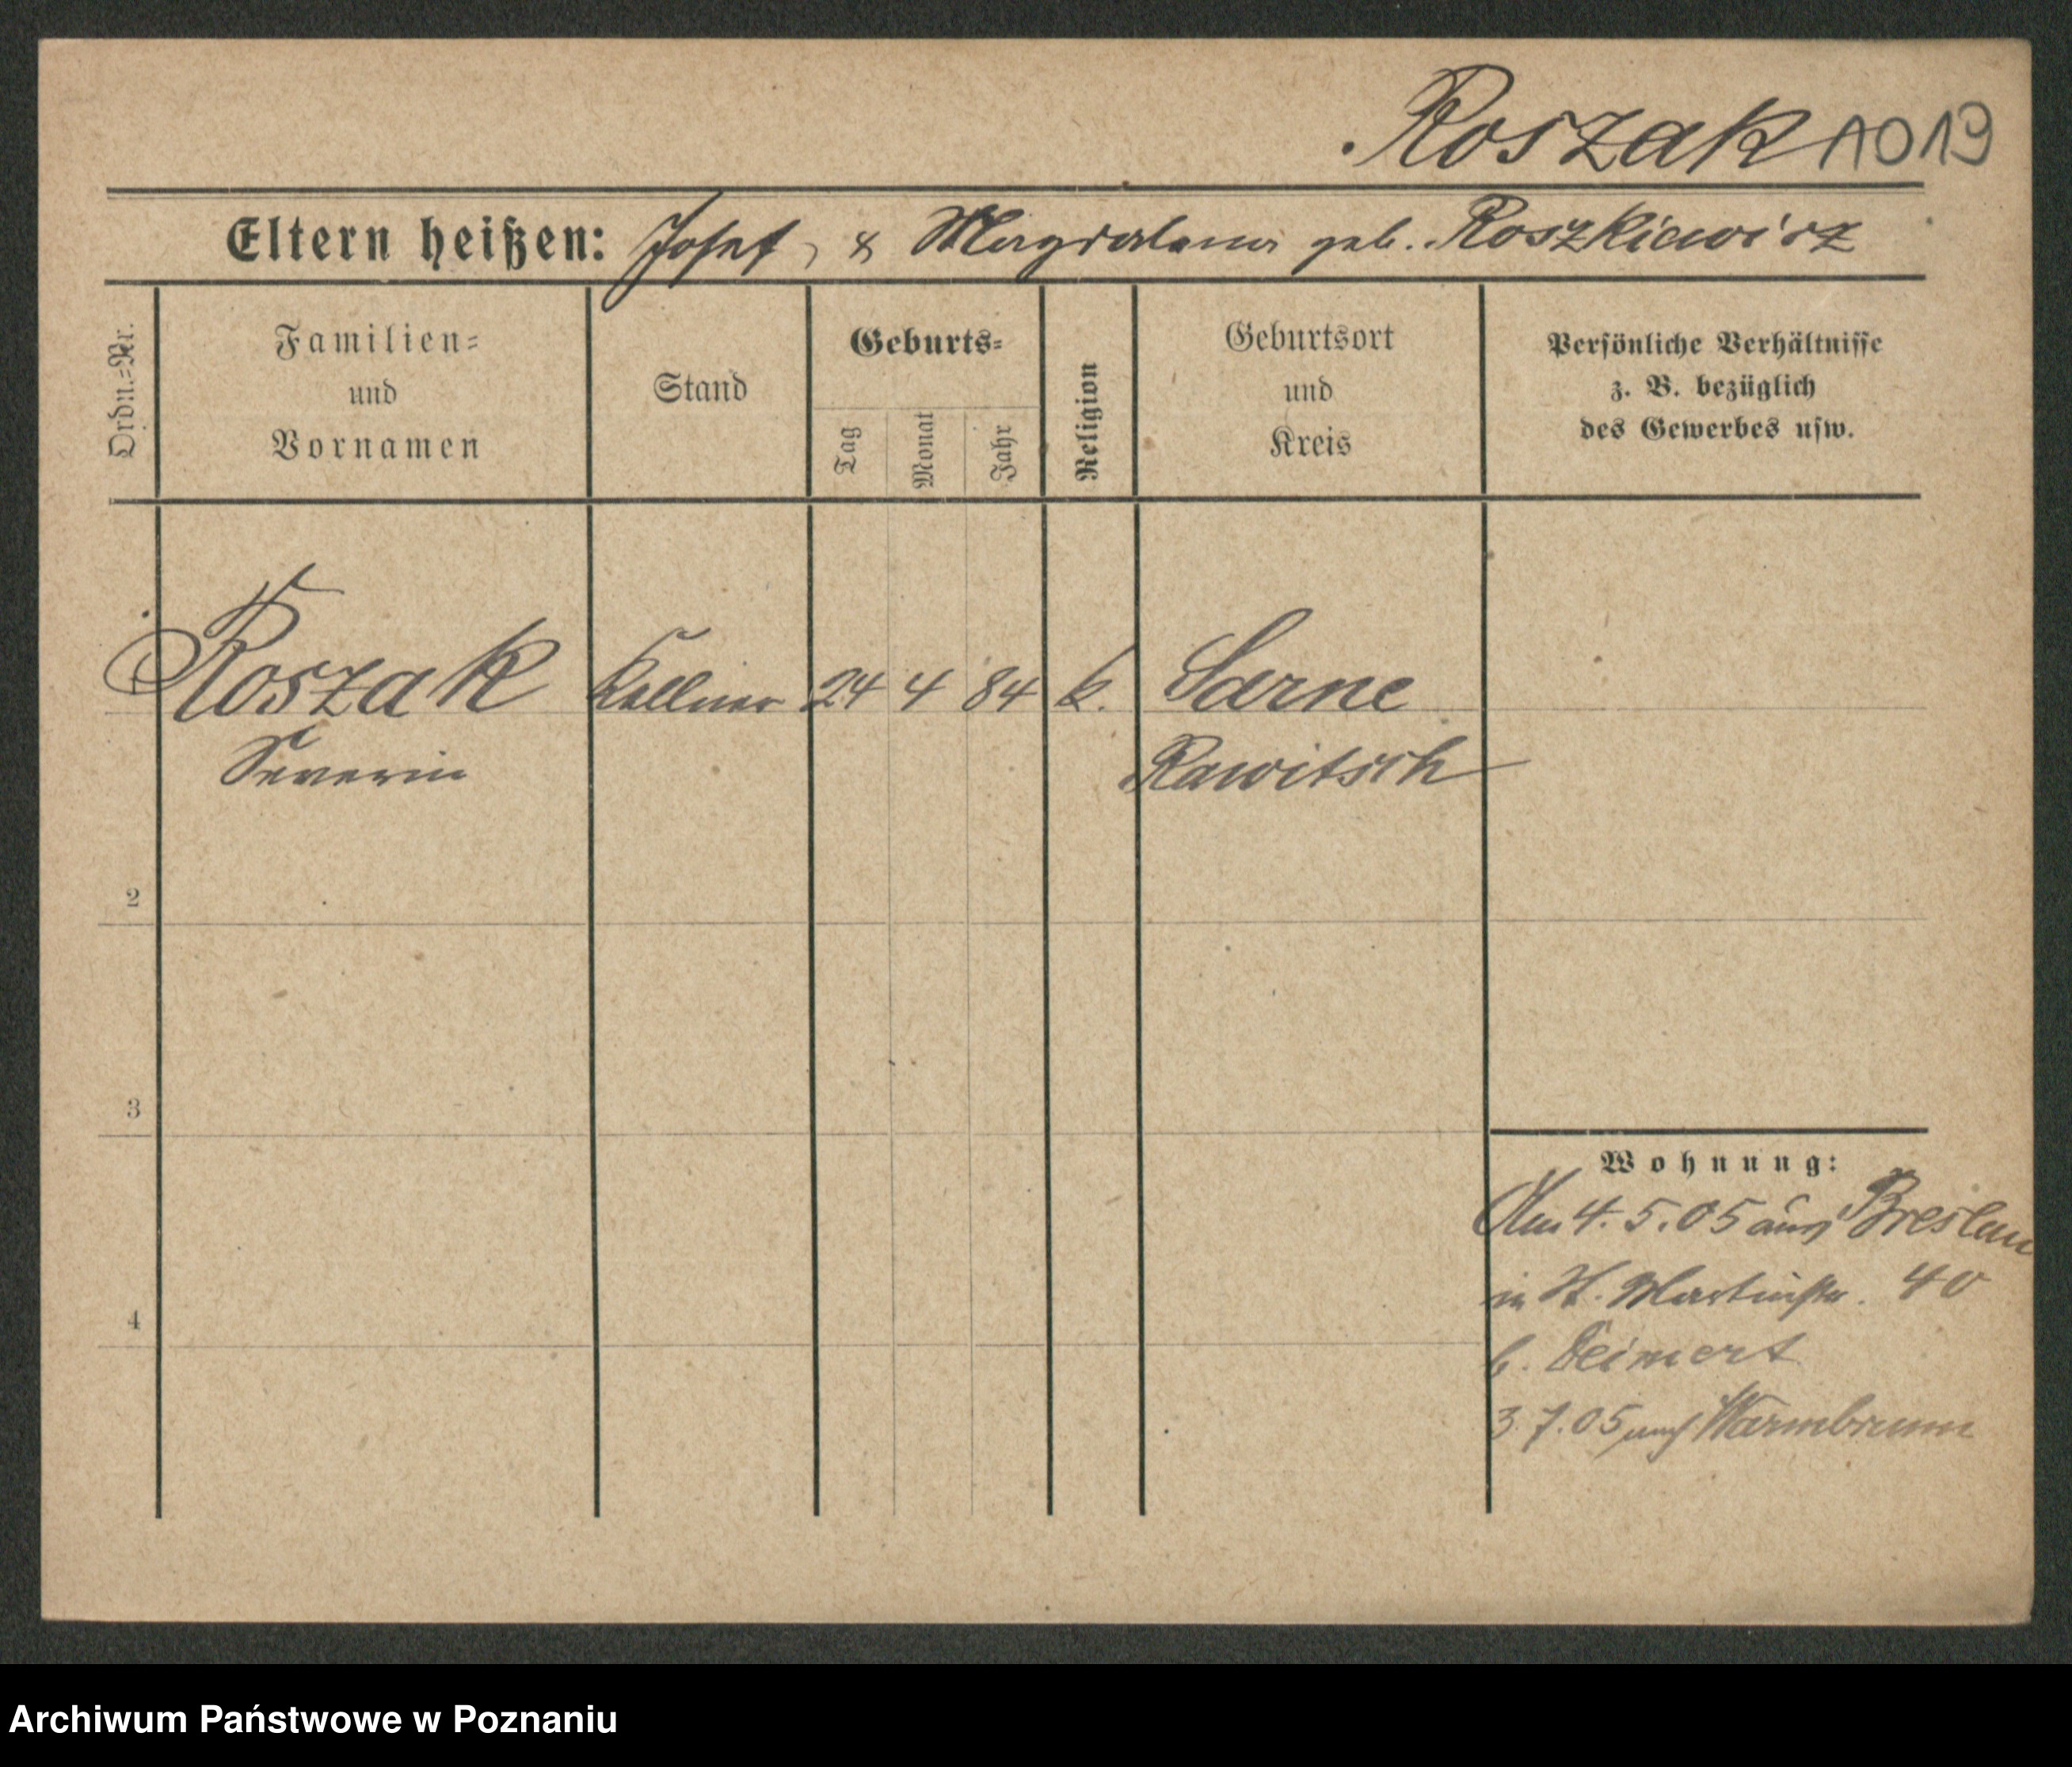 Roszak 1019
Eltern heißen: Josef, & Magdalena geb. Roszkiewicz
Ordn.=Nr.
Familien=
und
Vornamen
Stand
Geburts=
Tag
Monat
Jahr
Religion
Geburtsort
und
Kreis
Persönliche Verhältnisse
z. B. bezüglich
des Gewerbes usw.
Roszak Kellner 24 4 84 k. Sarne
Severin Rawitsch
2
3
4
Wohnung:
Am 4.5.05 aus Breslau
in St. Martinstr. 40
b. Deimert
3.7.05 nach Warmbrunn
Archiwum Państwowe w Poznaniu